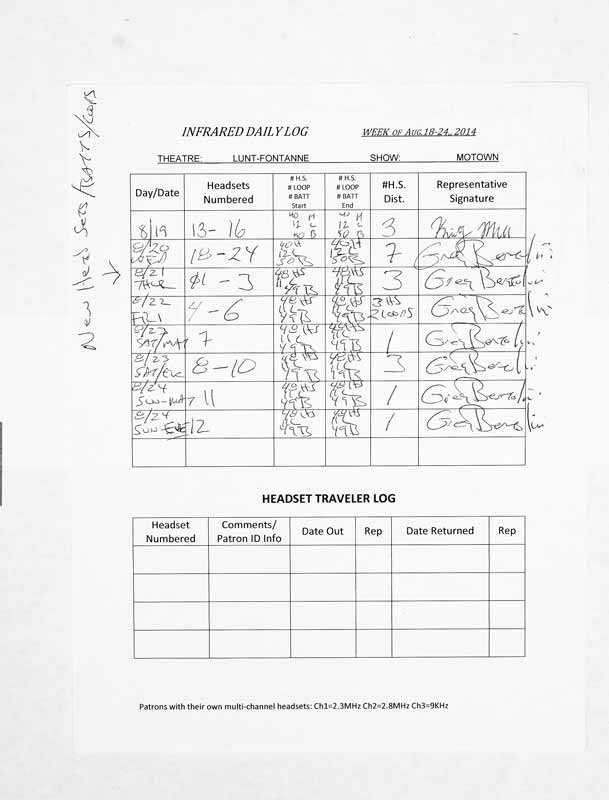 New Head Sets/BATTS/LOOPS
INFRARED DAILY LOG WEEK OF AUG.18-24, 2014
THEATRE: LUNT-FONTANNE SHOW: MOTOWN
Day/Date Headsets Numbered # H.S. # LOOP # BATT Start # H.S. # LOOP # BATT End #H.S. Dist. Representative Signature
8/19 13-16 40 H 12 L 50 B 40 H 12 L 50 B 3
8/20 WED 18-24 40H 12L 50B 40H 12L 50B 7 Greg Bertolini
8/21 THUR 1-3 48HS 11L 49B 48HS 11L 49B 3 Greg Bertolini
8/22 FRI 4-6 48HS 11L 49B 48HS 11L 49B 3HS 2LOOPS Greg Bertolini
8/23 SAT/MAT 7 48HS 11L 49B 48HS 11L 49B 1 Greg Bertolini
8/23 SAT/EVE 8-10 48HS 11L 49B 48HS 11L 49B 3 Greg Bertolini
8/24 SUN-MAT 11 48HS 11L 49B 48HS 11L 49B 1 Greg Bertolini
8/24 SUN EVE 12 48HS 11L 49B 48HS 11L 49B 1 Greg Bertolini
HEADSET TRAVELER LOG
Headset Numbered Comments/ Patron ID Info Date Out Rep Date Returned Rep
Patrons with their own multi-channel headsets: Ch1=2.3MHz Ch2=2.8MHz Ch3=9KHz